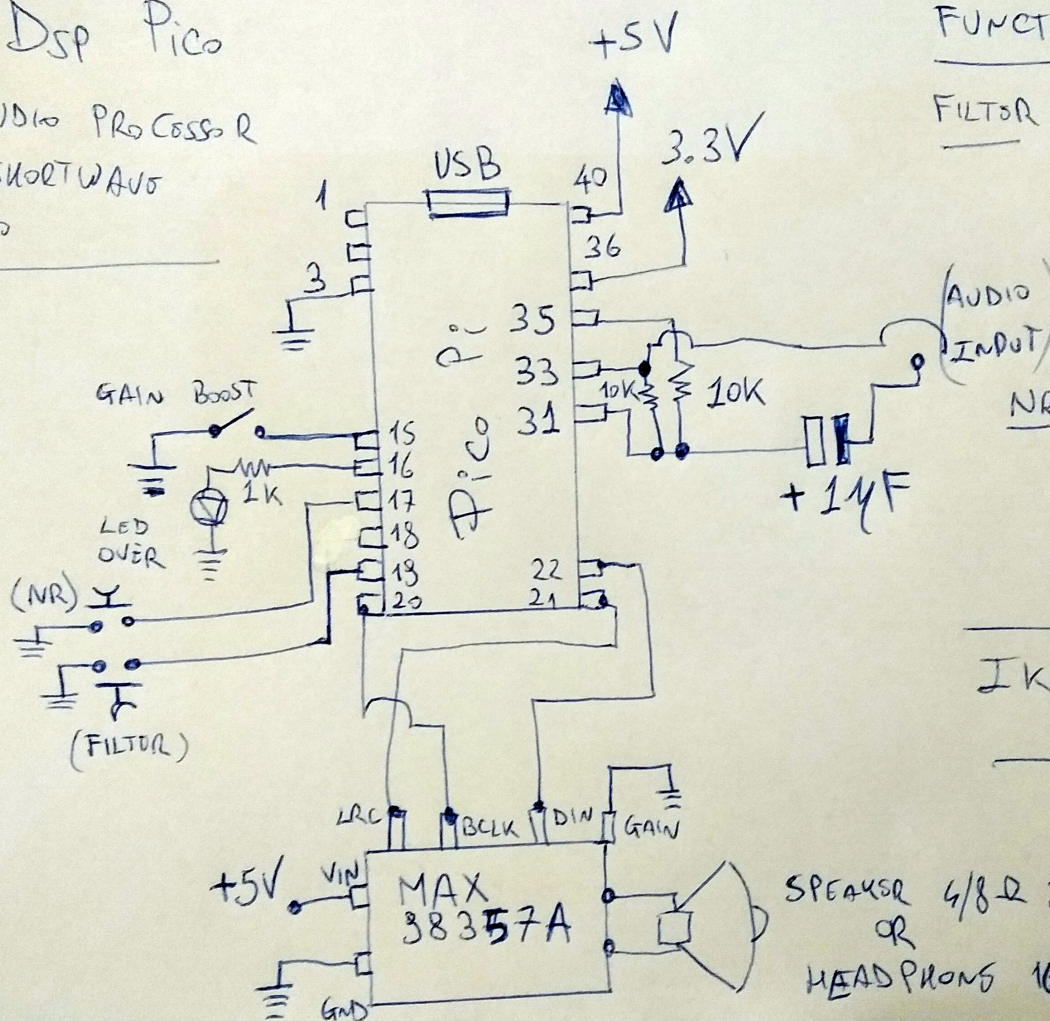 DSP Pico
UDIO PROCESSOR
SHORTWAVE
FUNCT
FILTER
+5V
3.3V
USB
1
3
40
36
35
33
31
10K
10K
Pico Pi
AUDIO
INPUT
NR
+1µF
GAIN BOOST
15
16
17
18
19
20
22
21
1K
LED
OVER
(NR)
(FILTER)
LRC
BCLK
DIN
GAIN
+5V
VIN
MAX
98357A
GND
SPEAKER 4/8Ω
OR
HEADPHONE 16